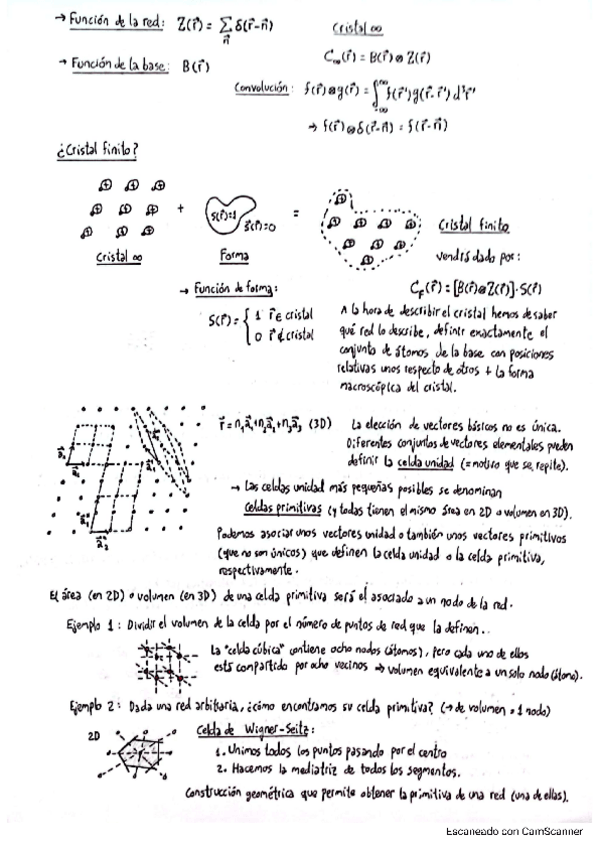 → Función de la red: Z(r⃗) = Σ_n⃗ δ(r⃗-n⃗)
Cristal ∞
→ Función de la base: B(r⃗)
C∞(r⃗) = B(r⃗) ⊗ Z(r⃗)
Convolución: f(r⃗)⊗g(r⃗) = ∫_{-∞}^{∞} f(r⃗')g(r⃗-r⃗') d³r'
→ f(r⃗)⊗δ(r⃗-n⃗) = f(r⃗-n⃗)
¿Cristal finito?
+
S(r⃗)=1
S(r⃗)=0
=
Cristal ∞
Forma
Cristal finito
vendrá dado por:
→ Función de forma:
C_F(r⃗) = [B(r⃗)⊗Z(r⃗)]·S(r⃗)
S(r⃗) = { 1 r⃗ ∈ cristal
0 r⃗ ∉ cristal
A la hora de describir el cristal hemos de saber
qué red lo describe, definir exactamente el
conjunto de átomos de la base con posiciones
relativas unos respecto de otros + la forma
macroscópica del cristal.
r⃗ = n₁a⃗₁+n₂a⃗₂+n₃a⃗₃ (3D)
La elección de vectores básicos no es única.
Diferentes conjuntos de vectores elementales pueden
definir la celda unidad (= motivo que se repite).
→ Las celdas unidad más pequeñas posibles se denominan
celdas primitivas (y todas tienen el mismo área en 2D o volumen en 3D).
Podemos asociar unos vectores unidad o también unos vectores primitivos
(que no son únicos) que definen la celda unidad o la celda primitiva,
respectivamente.
El área (en 2D) o volumen (en 3D) de una celda primitiva será el asociado a un nodo de la red.
Ejemplo 1: Dividir el volumen de la celda por el número de puntos de red que la definen.
La "celda cúbica" contiene ocho nodos (átomos), pero cada uno de ellos
está compartido por ocho vecinos → volumen equivalente a un solo nodo (átomo).
Ejemplo 2: Dada una red arbitraria, ¿cómo encontramos su celda primitiva? (→ de volumen = 1 nodo)
2D
Celda de Wigner-Seitz:
1. Unimos todos los puntos pasando por el centro
2. Hacemos la mediatriz de todos los segmentos.
Construcción geométrica que permite obtener la primitiva de una red (una de ellas).
Escaneado con CamScanner